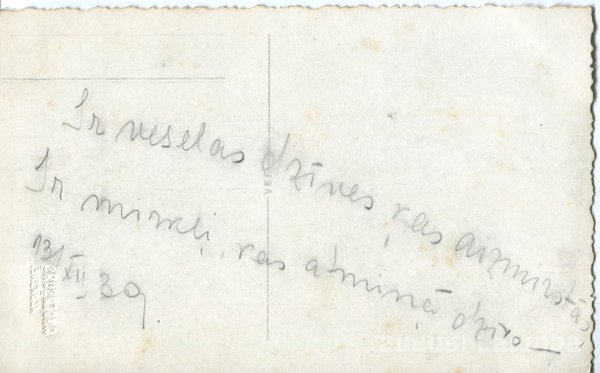 Ir veselas dzīves, kas aizmirstās,
Ir mirkļi, kas atmiņā dzīvo —
13/XII 39.